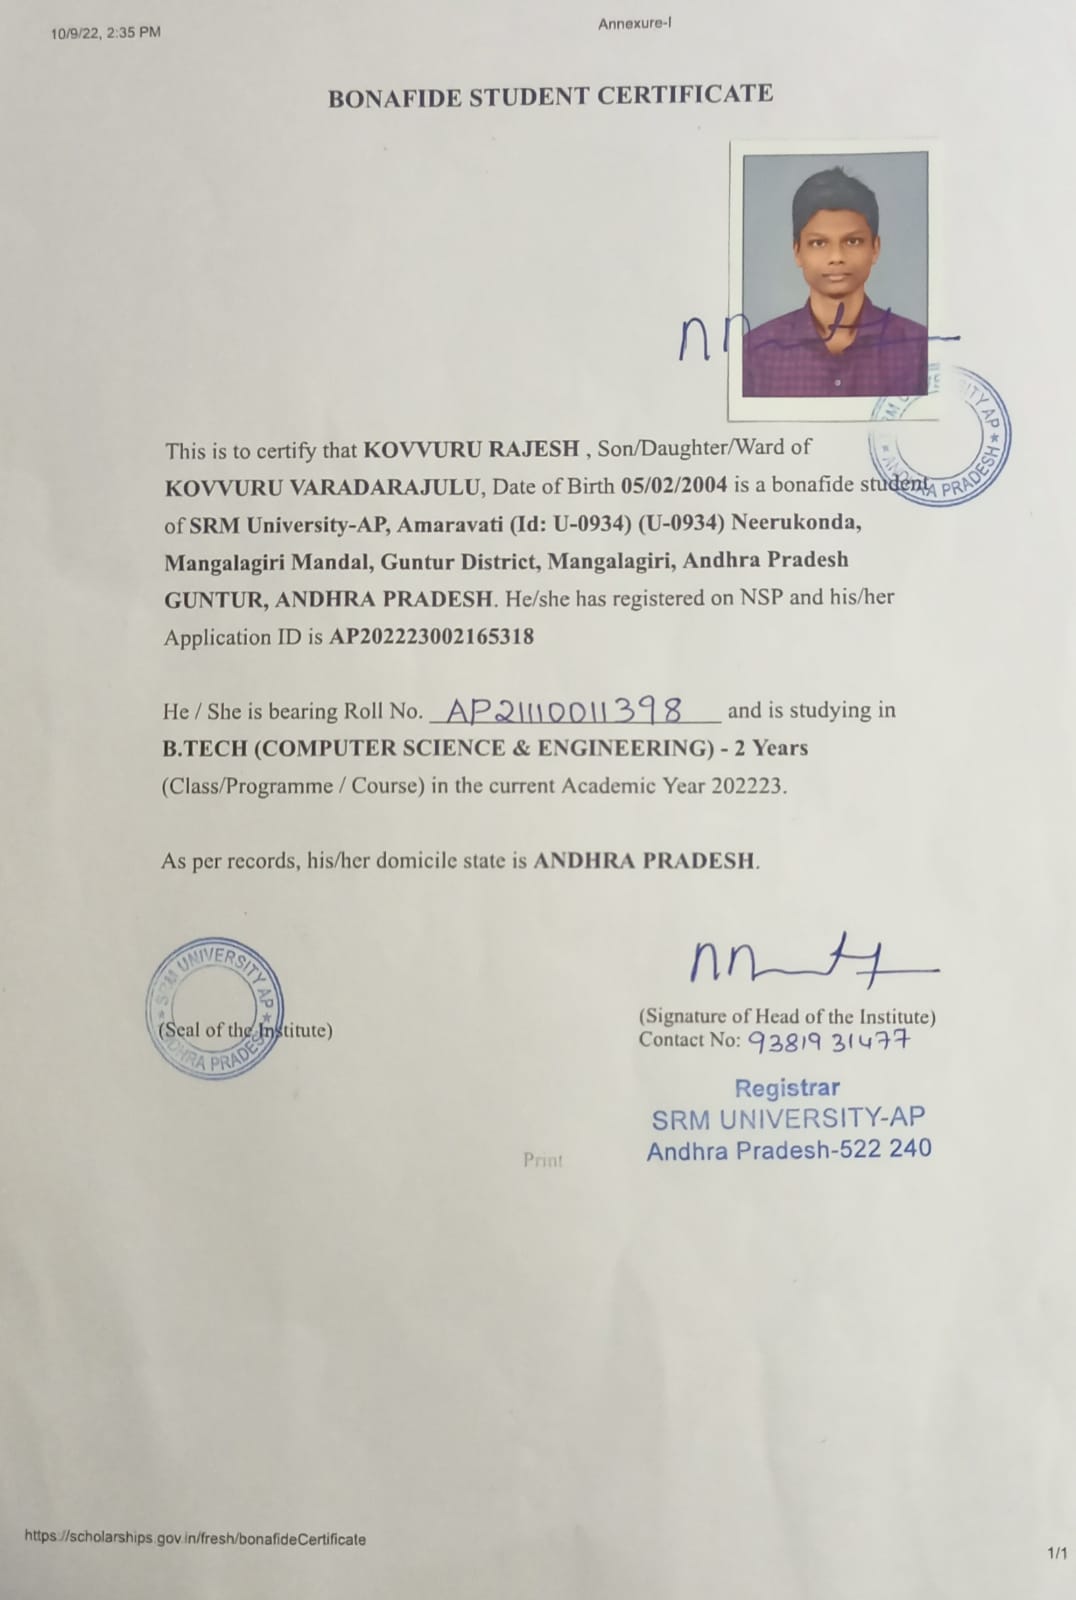 10/9/22, 2:35 PM
Annexure-I
BONAFIDE STUDENT CERTIFICATE
SRM UNIVERSITY AP
ANDHRA PRADESH
This is to certify that KOVVURU RAJESH , Son/Daughter/Ward of
KOVVURU VARADARAJULU, Date of Birth 05/02/2004 is a bonafide student
of SRM University-AP, Amaravati (Id: U-0934) (U-0934) Neerukonda,
Mangalagiri Mandal, Guntur District, Mangalagiri, Andhra Pradesh
GUNTUR, ANDHRA PRADESH. He/she has registered on NSP and his/her
Application ID is AP202223002165318
He / She is bearing Roll No. AP21110011398 and is studying in
B.TECH (COMPUTER SCIENCE & ENGINEERING) - 2 Years
(Class/Programme / Course) in the current Academic Year 202223.
As per records, his/her domicile state is ANDHRA PRADESH.
SRM UNIVERSITY AP
ANDHRA PRADESH
(Seal of the Institute)
(Signature of Head of the Institute)
Contact No: 93819 31477
Registrar
SRM UNIVERSITY-AP
Andhra Pradesh-522 240
Print
https://scholarships.gov.in/fresh/bonafideCertificate
1/1